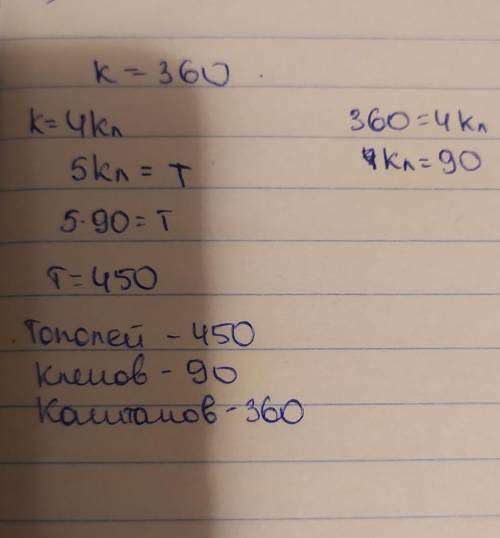 к = 360
к = 4кл
360 = 4кл
5кл = т
кл = 90
5·90 = т
т = 450
Тополей - 450
Кленов - 90
Каштанов - 360